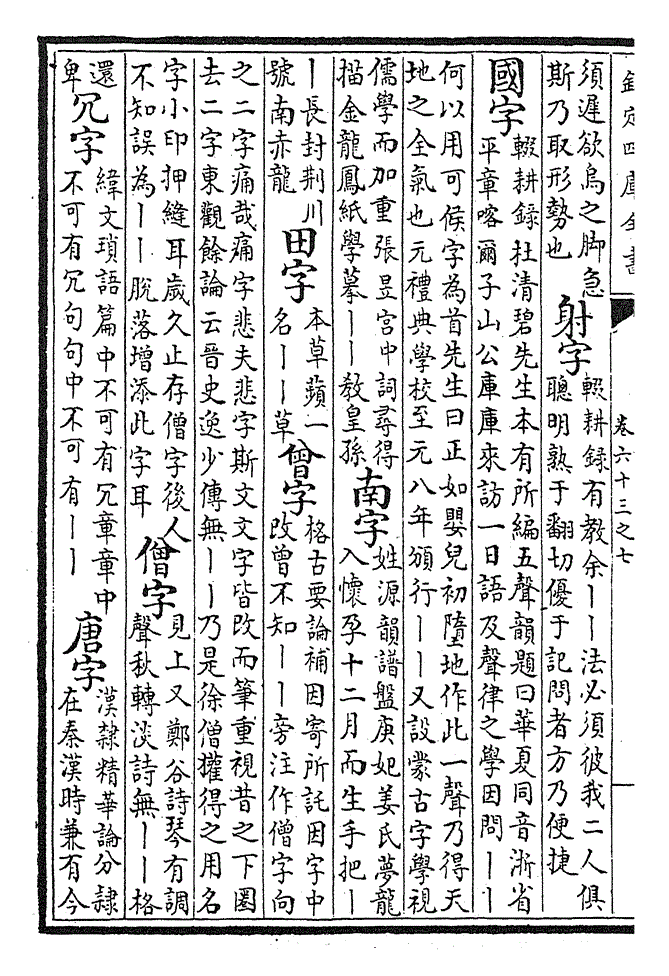 欽定四庫全書
卷六十三之七
須遲欲烏之脚急
斯乃取形勢也
射字
輟耕録有教余丨丨法必須彼我二人俱
聰明熟于翻切優于記問者方乃便捷
國字
輟耕録杜清碧先生本有所編五聲韻題曰華夏同音浙省
平章喀爾子山公庫庫來訪一日語及聲律之學因問丨丨
何以用可侯字為首先生曰正如嬰兒初墮地作此一聲乃得天
地之全氣也元禮典學校至元八年頒行丨丨又設蒙古字學視
儒學而加重張昱宫中詞尋得
描金龍鳳紙學摹丨丨教皇孫
南字
姓源韻譜盤庚妃姜氏夢龍
入懷孕十二月而生手把丨
丨長封荆川
號南赤龍
田字
本草蘋一
名丨丨草
曾字
格古要論補因寄所託因字中
改曾不知丨丨旁注作僧字向
之二字痛哉痛字悲夫悲字斯文文字皆改而筆重視昔之下圈
去二字東觀餘論云晉史逸少傳無丨丨乃是徐僧權得之用名
字小印押縫耳歲久止存僧字後人
不知誤為丨丨脫落增添此字耳
僧字
見上又鄭谷詩琴有調
聲秋轉淡詩無丨丨格
還
卑
冗字
緯文瑣語篇中不可有冗章章中
不可有冗句句中不可有丨丨
唐字
漢隸精華論分隸
在秦漢時兼有今